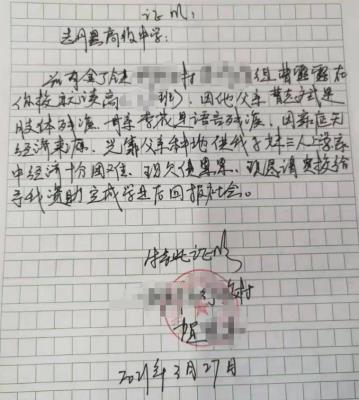 证明
高级中学:
兹有金 村 组曹露露在
你校就读高 班),因他父亲曹 是
肢体残疾、母亲 是语言残疾,因家庭无
经济来源,光靠父亲种地供我子妹三人上学,家
中经济十分困难、现欠债累累,现恳请贵校给
予我资助完成学业后回报社会。
特此证明
村
2021年3月27日